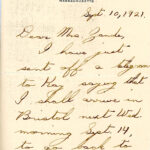 MASSACHUSETTS
Sept. 10, 1921.
Dear Mrs.
I have just
sent off a telegram
to Kay saying that
I shall arrive in
Bristol next Wed.
morning Sept. 14,
to go back to